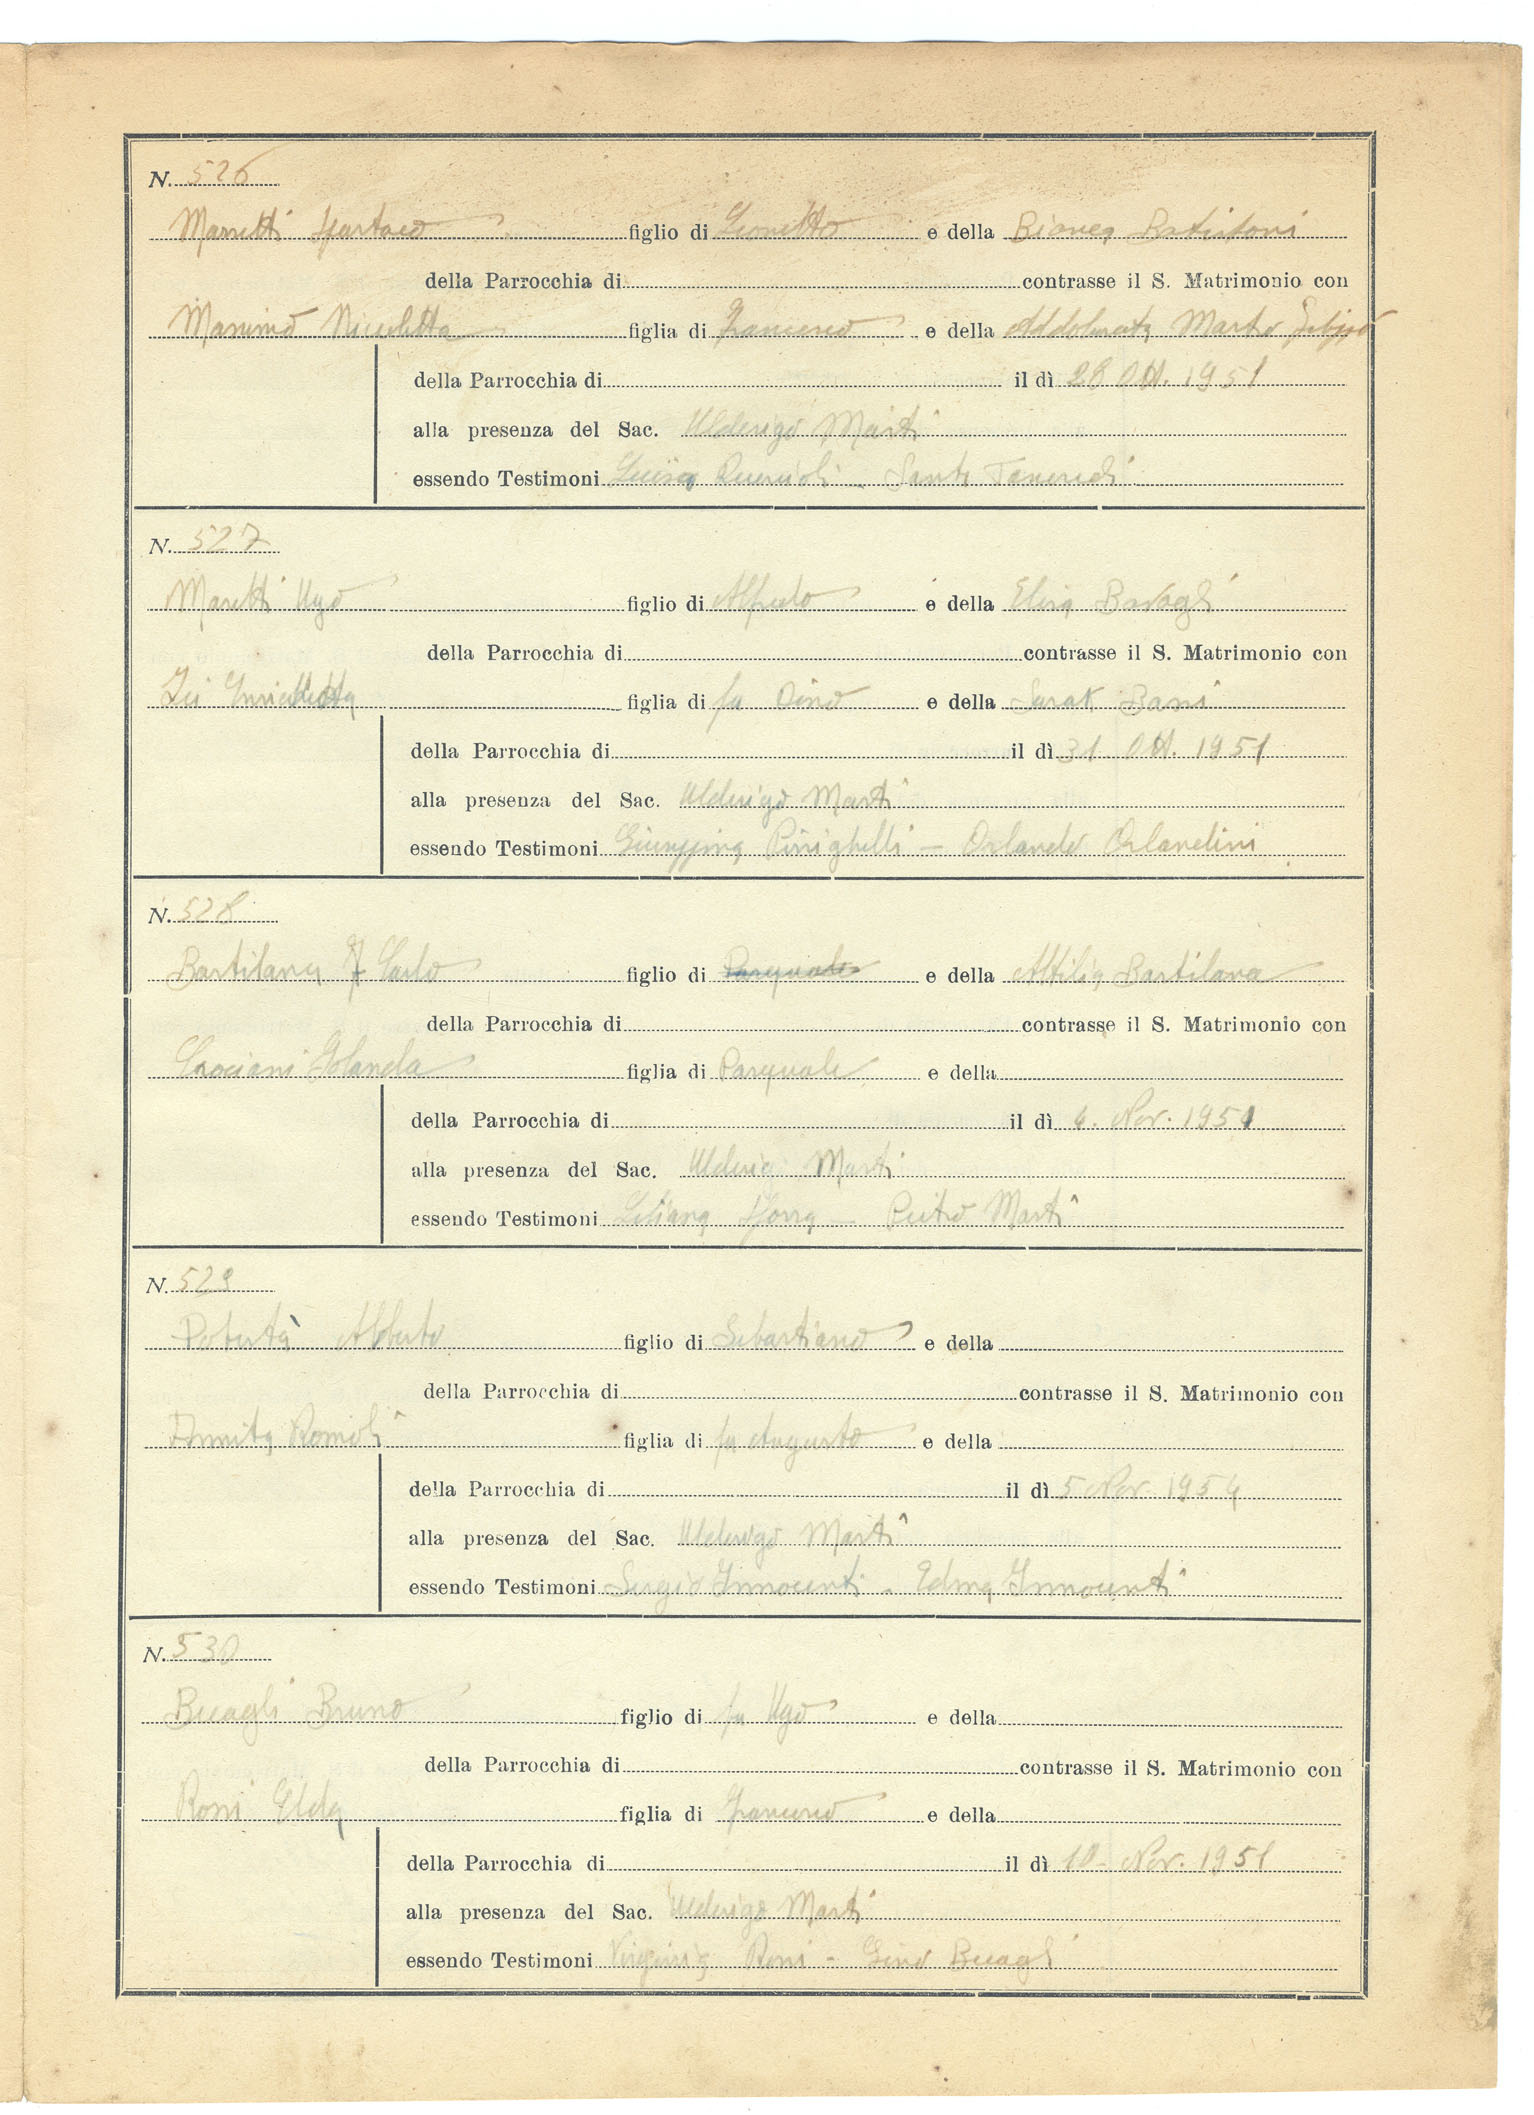 N. 526
Marretti Spartaco figlio di Leonetto e della Bianca Batistoni
della Parrocchia di contrasse il S. Matrimonio con
Nicoletta figlia di Francesco e della Addolorata
della Parrocchia di il dì 28 Ott. 1951
alla presenza del Sac. Ulderigo Marti
essendo Testimoni Luisa Quercioli - Sante Tancredi
N. 527
Maretti Ugo figlio di Alfredo e della Elisa
della Parrocchia di contrasse il S. Matrimonio con
figlia di fu Dino e della Sarah Bani
della Parrocchia di il dì 31 Ott. 1951
alla presenza del Sac. Ulderigo Marti
essendo Testimoni Giuseppina Pinighelli - Orlando Orlandini
N. 528
Bartilana Carlo figlio di Pasquale e della Attilia Bartilana
della Parrocchia di contrasse il S. Matrimonio con
Crociani Jolanda figlia di Pasquale e della
della Parrocchia di il dì 4. Nov. 1951
alla presenza del Sac. Ulderig Marti
essendo Testimoni Liliana - Pietro Marti
N. 529
Alberto figlio di Sebastiano e della
della Parrocchia di contrasse il S. Matrimonio con
Annita Romoli figlia di fu Augusto e della
della Parrocchia di il dì 5 Nov. 1954
alla presenza del Sac. Ulderigo Marti
essendo Testimoni Sergio Innocenti - Edma Innocenti
N. 530
Bucagli Bruno figlio di fu Ugo e della
della Parrocchia di contrasse il S. Matrimonio con
Roni Elda figlia di Francesco e della
della Parrocchia di il dì 10 - Nov. 1951
alla presenza del Sac. Ulderigo Marti
essendo Testimoni Virginia Roni - Gino Bucagli